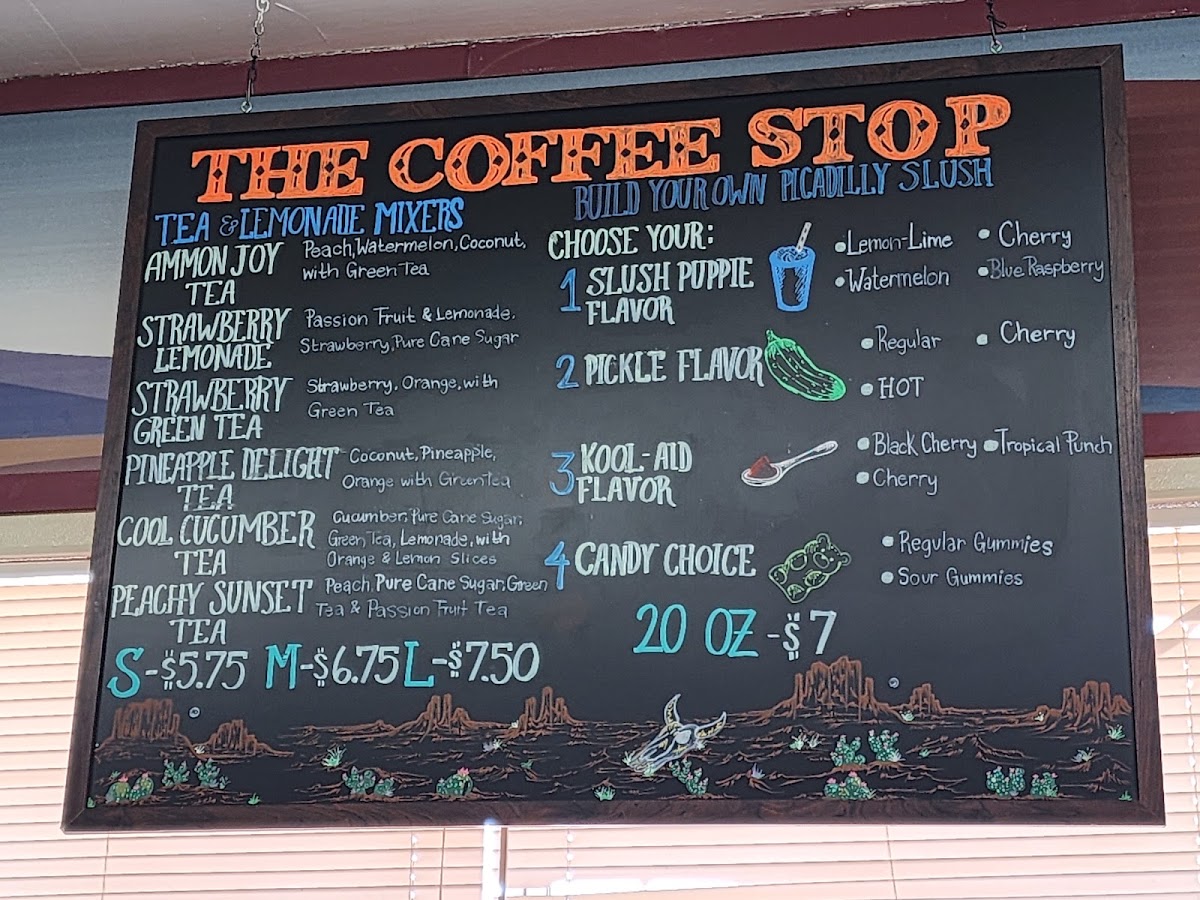 THE COFFEE STOP
TEA & LEMONADE MIXERS
AMMON JOY
TEA
Peach, Watermelon, Coconut,
with Green Tea
STRAWBERRY
LEMONADE
Passion Fruit & Lemonade.
Strawberry, Pure Cane Sugar
STRAWBERRY
GREEN TEA
Strawberry, Orange, with
Green Tea
PINEAPPLE DELIGHT
TEA
Coconut, Pineapple,
Orange with Green Tea
COOL CUCUMBER
TEA
Cucumber, Pure Cane Sugar,
Green, Tea, Lemonade, with
Orange & Lemon Slices
PEACHY SUNSET
TEA
Peach, Pure Cane Sugar, Green
Tea & Passion Fruit Tea
S-$5.75 M-$6.75 L-$7.50
BUILD YOUR OWN PICADILLY SLUSH
CHOOSE YOUR:
1 SLUSH PUPPIE
FLAVOR
•Lemon-Lime • Cherry
•Watermelon •Blue Raspberry
2 PICKLE FLAVOR
•Regular • Cherry
•HOT
3 KOOL-AID
FLAVOR
•Black Cherry •Tropical Punch
•Cherry
4 CANDY CHOICE
•Regular Gummies
•Sour Gummies
20 OZ -$7